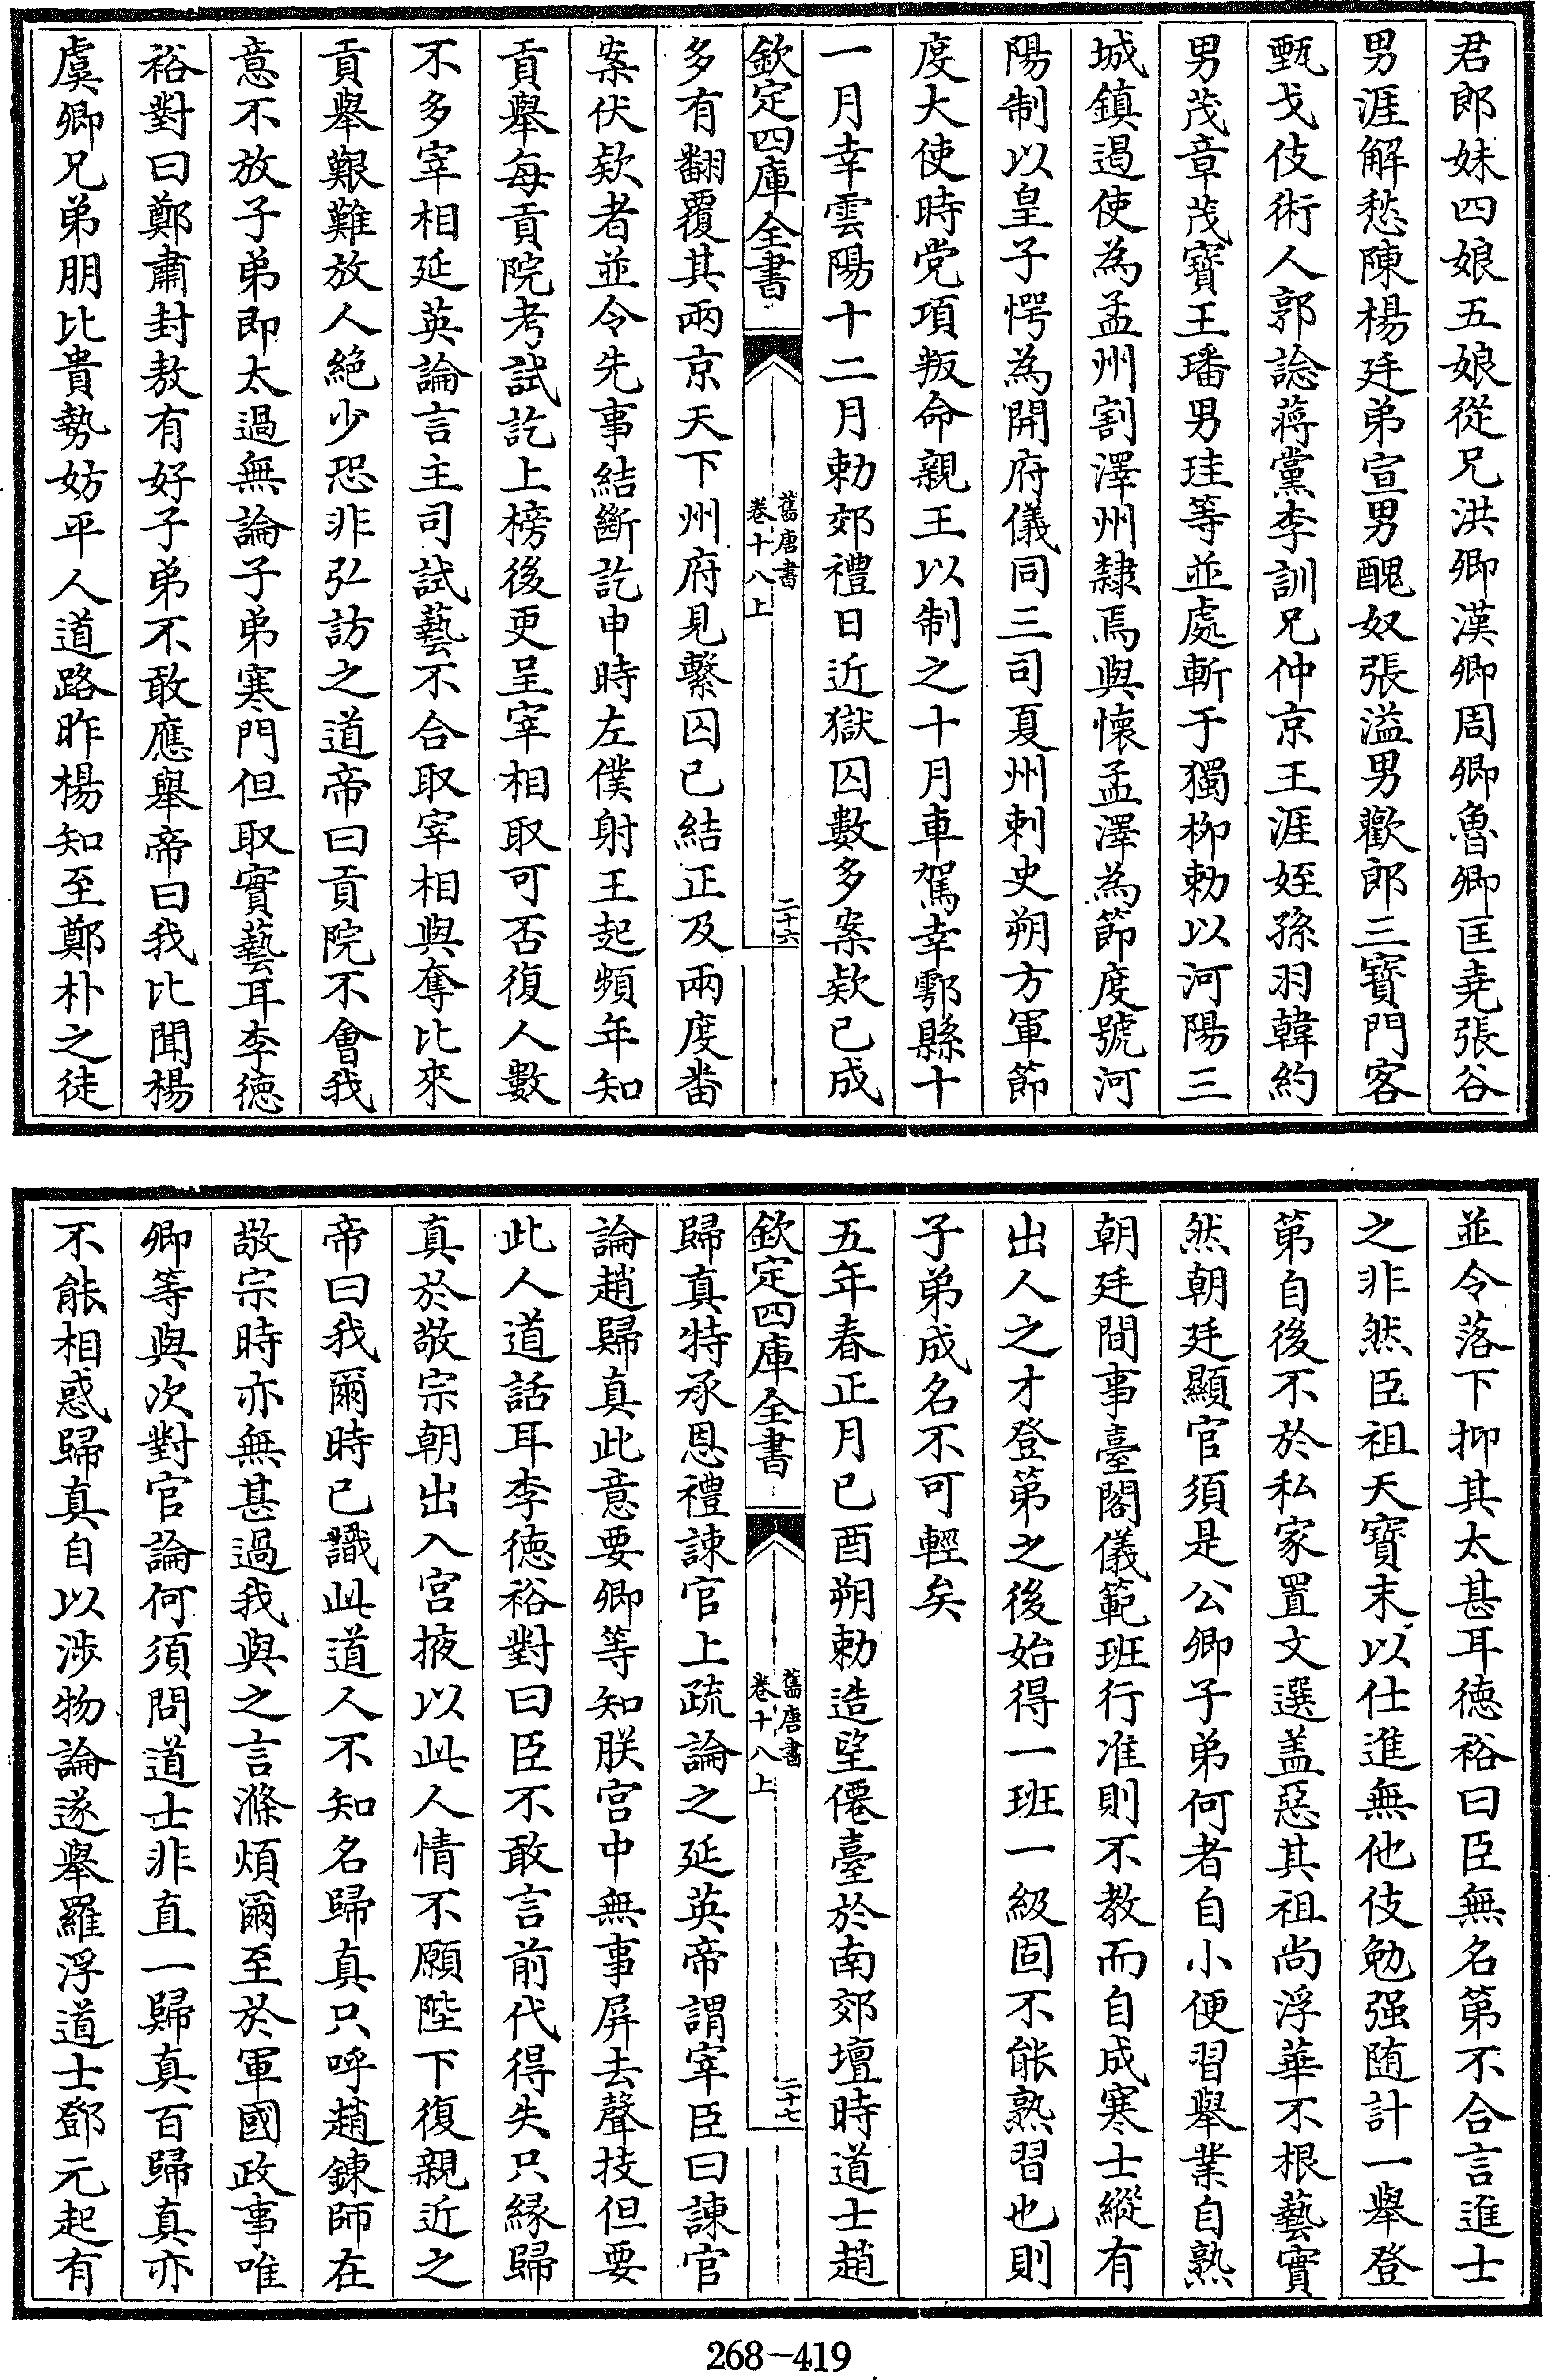 君郎妹四娘五娘從兄洪卿漢卿周卿魯卿匡堯張谷
男涯解愁陳楊廷弟宣男醜奴張溢男歡郎三寳門客
甄戈伎術人郭諗蔣黨李訓兄仲京王涯姪孫羽韓約
男茂章茂寳王璠男珪等並處斬于獨柳勅以河陽三
城鎮遏使為孟州割澤州隸焉與懷孟澤為節度號河
陽制以皇子愕為開府儀同三司夏州刺史朔方軍節
度大使時党項叛命親王以制之十月車駕幸鄠縣十
一月幸雲陽十二月勅郊禮日近獄囚數多案欵已成
欽定四庫全書
舊唐書
卷十八上
二十六
多有翻覆其兩京天下州府見繫囚已結正及兩度番
案伏欵者並令先事結斷訖申時左僕射王起頻年知
貢舉每貢院考試訖上榜後更呈宰相取可否復人數
不多宰相延英論言主司試藝不合取宰相與奪比來
貢舉艱難放人絶少恐非弘訪之道帝曰貢院不會我
意不放子弟即太過無論子弟寒門但取實藝耳李徳
裕對曰鄭肅封敖有好子弟不敢應舉帝曰我比聞楊
虞卿兄弟朋比貴勢妨平人道路昨楊知至鄭朴之徒
並令落下抑其太甚耳徳裕曰臣無名第不合言進士
之非然臣祖天寳末以仕進無他伎勉强随計一舉登
第自後不於私家置文選盖惡其祖尚浮華不根藝實
然朝廷顯官須是公卿子弟何者自小便習舉業自熟
朝廷間事臺閣儀範班行准則不教而自成寒士縱有
出人之才登第之後始得一班一級固不能熟習也則
子弟成名不可輕矣
五年春正月已酉朔勅造望僊臺於南郊壇時道士趙
欽定四庫全書
舊唐書
卷十八上
二十七
歸真特承恩禮諫官上疏論之延英帝謂宰臣曰諫官
論趙歸真此意要卿等知朕宫中無事屏去聲技但要
此人道話耳李徳裕對曰臣不敢言前代得失只縁歸
真於敬宗朝出入宫掖以此人情不願陛下復親近之
帝曰我爾時已識此道人不知名歸真只呼趙錬師在
敬宗時亦無甚過我與之言滌煩爾至於軍國政事唯
卿等與次對官論何須問道士非直一歸真百歸真亦
不能相惑歸真自以涉物論遂舉羅浮道士鄧元起有
268-419